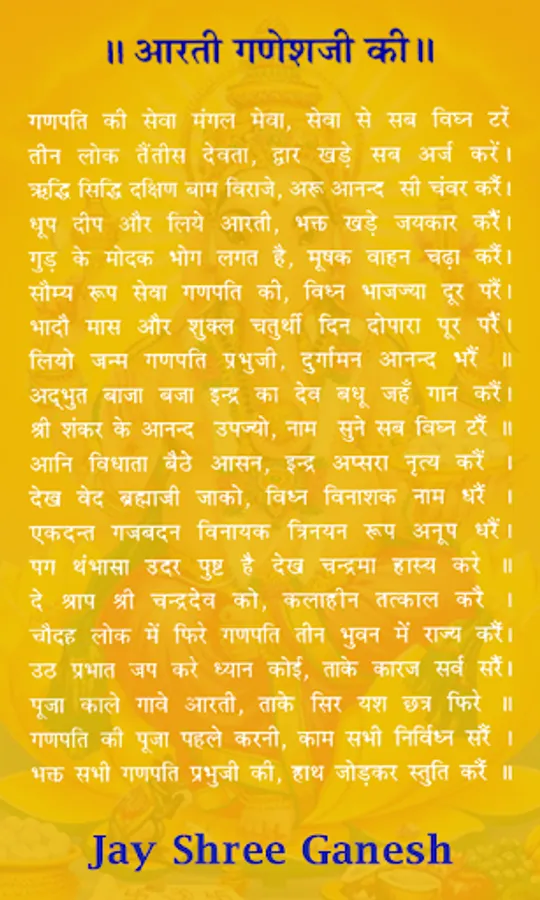 ॥ आरती गणेशजी की ॥
गणपति की सेवा मंगल मेवा, सेवा से सब विघ्न टरें
तीन लोक तैंतीस देवता, द्वार खड़े सब अर्ज करें।
ऋद्धि सिद्धि दक्षिण बाम विराजे, अरू आनन्द सी चंवर करैं।
धूप दीप और लिये आरती, भक्त खड़े जयकार करैं।
गुड़ के मोदक भोग लगत है, मूषक वाहन चढ़ा करैं।
सौम्य रूप सेवा गणपति की, विध्न भाजज्या दूर परैं।
भादौ मास और शुक्ल चतुर्थी दिन दोपारा पूर परैं।
लियो जन्म गणपति प्रभुजी, दुर्गामन आनन्द भरैं ॥
अद्भुत बाजा बजा इन्द्र का देव बधू जहँ गान करैं।
श्री शंकर के आनन्द उपज्यो, नाम सुने सब विघ्न टरैं ॥
आनि विधाता बैठे आसन, इन्द्र अप्सरा नृत्य करैं ।
देख वेद ब्रह्माजी जाको, विध्न विनाशक नाम धरैं ।
एकदन्त गजबदन विनायक त्रिनयन रूप अनूप धरैं।
पग थंभासा उदर पुष्ट है देख चन्द्रमा हास्य करे ॥
दे श्राप श्री चन्द्रदेव को, कलाहीन तत्काल करै ।
चौदह लोक में फिरे गणपति तीन भुवन में राज्य करैं।
उठ प्रभात जप करे ध्यान कोई, ताके कारज सर्व सरैं।
पूजा काले गावे आरती, ताके सिर यश छत्र फिरे ॥
गणपति की पूजा पहले करनी, काम सभी निर्विध्न सरैं ।
भक्त सभी गणपति प्रभुजी की, हाथ जोड़कर स्तुति करैं ॥
Jay Shree Ganesh